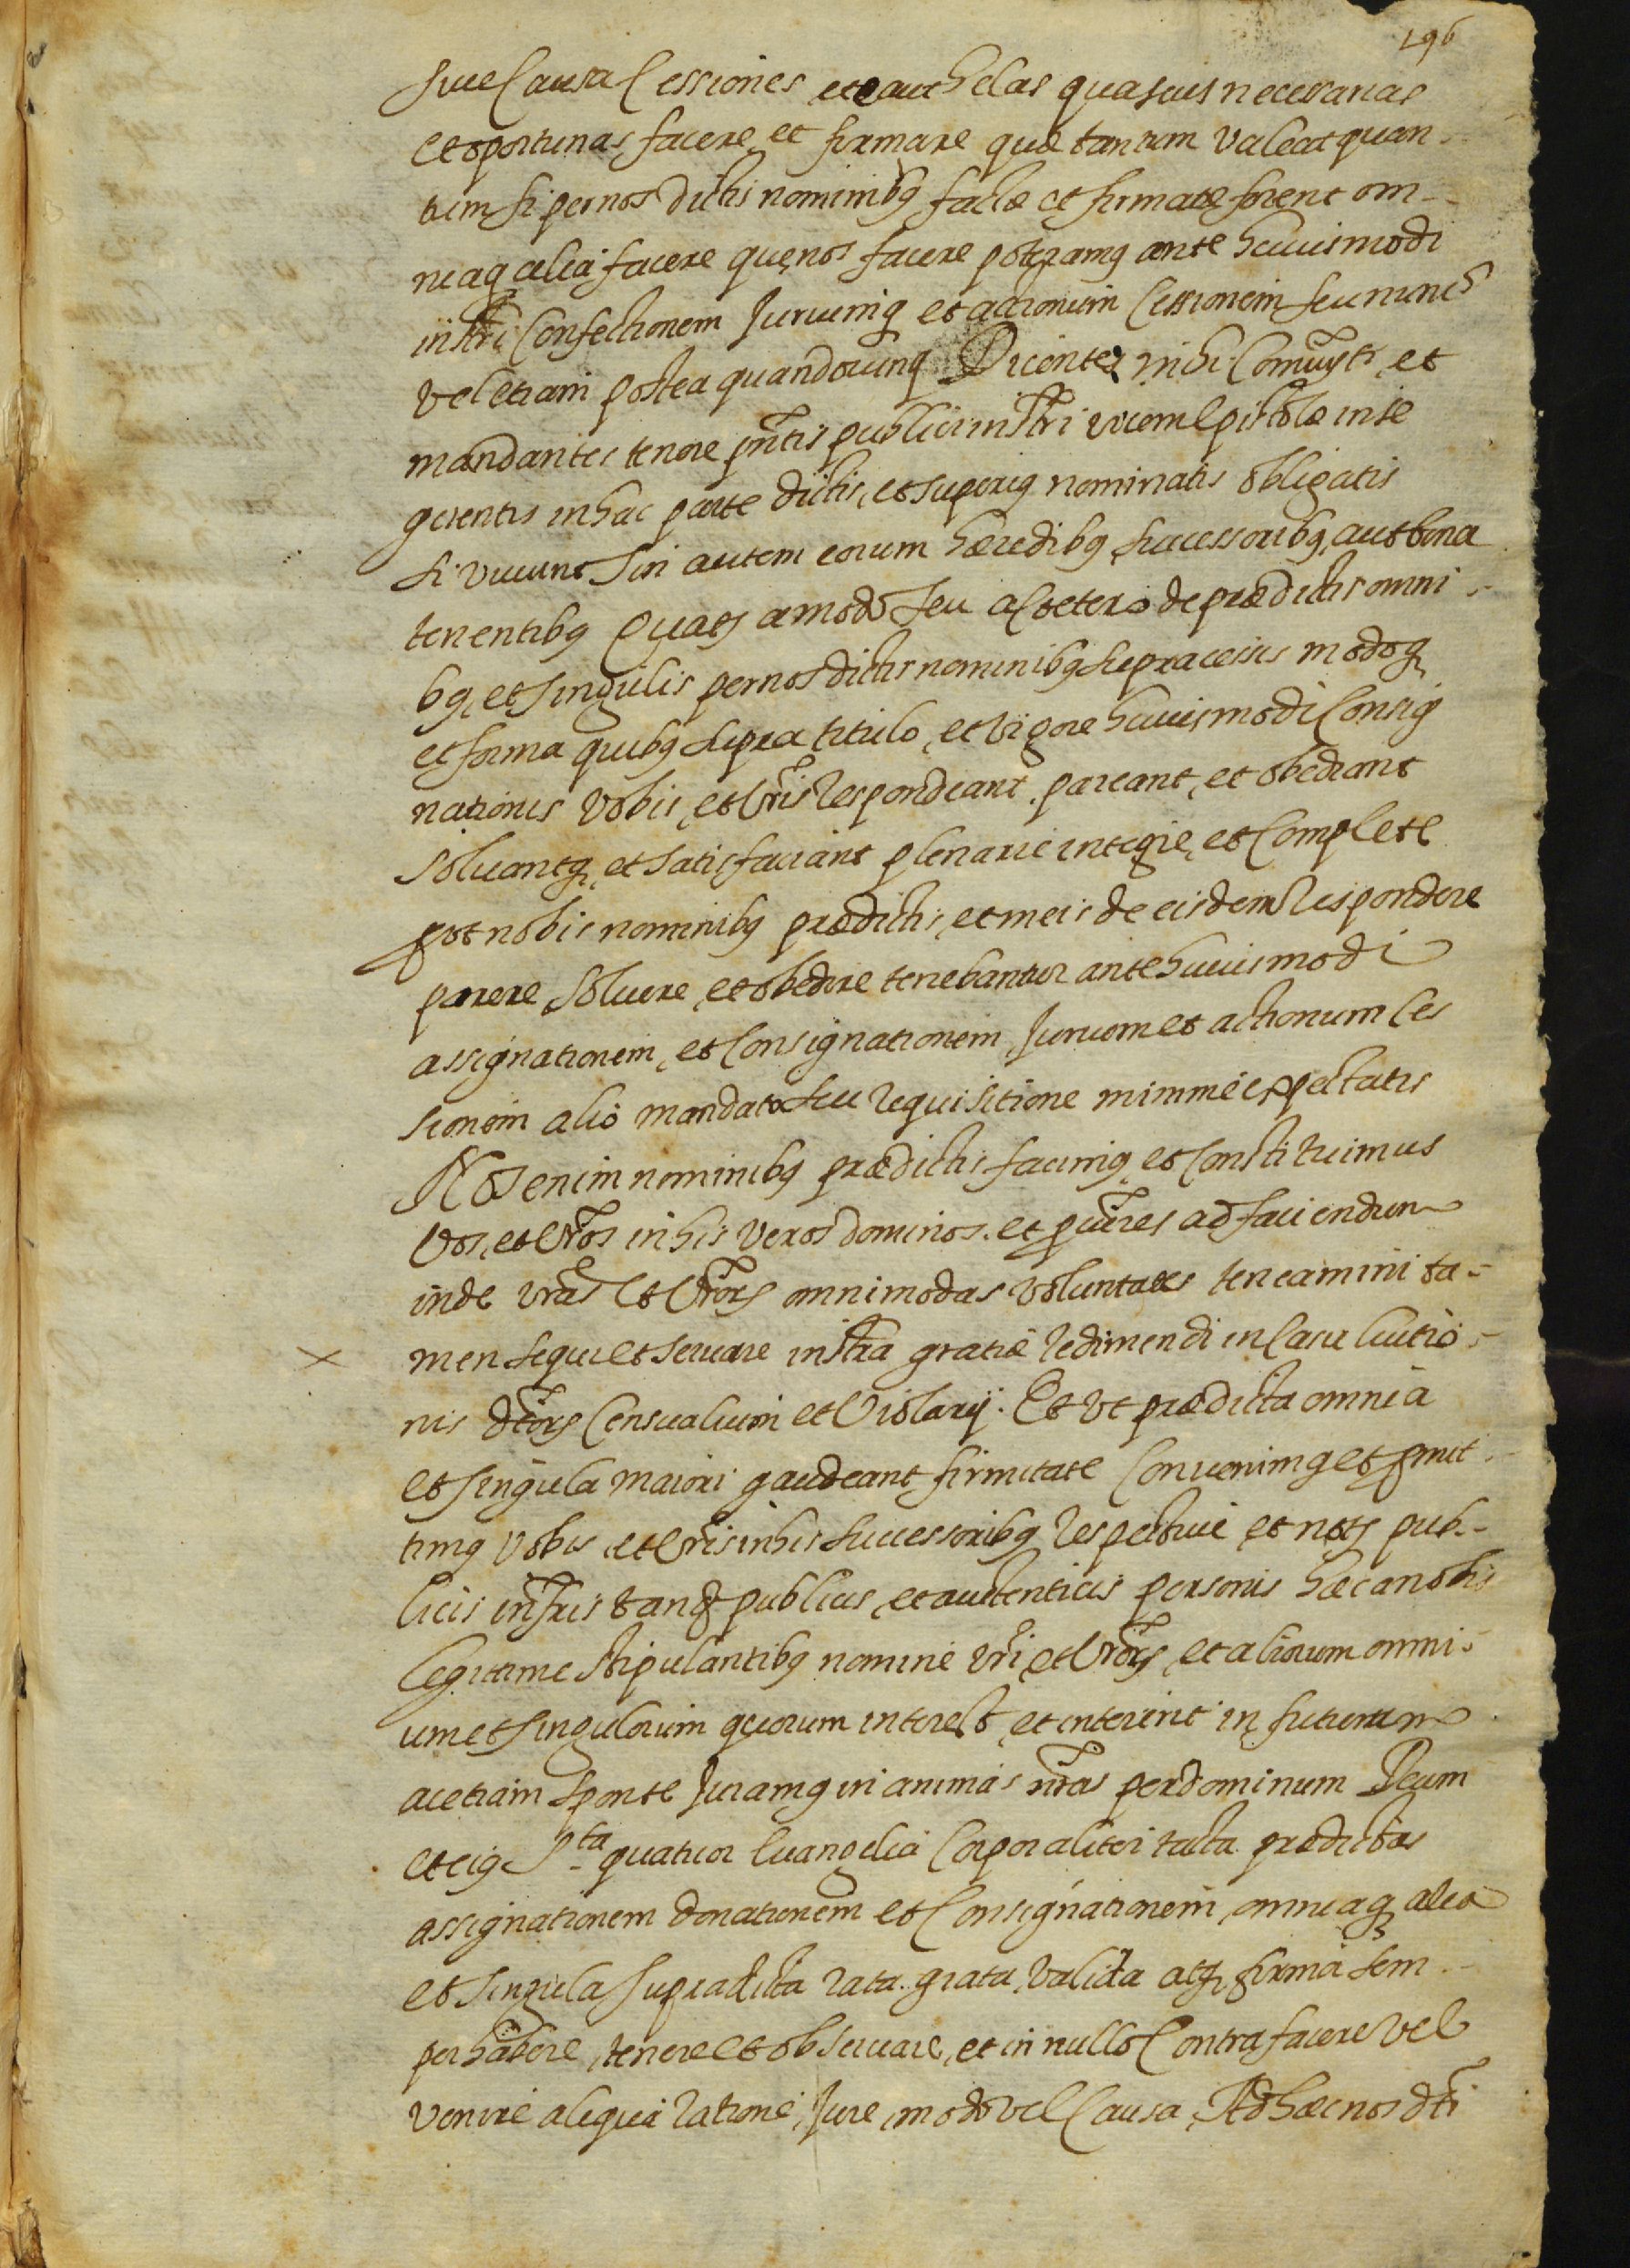 196
siue causa Cessiones et cauthelas quasuis necessarias
et oportunas facere et firmare quæ tantum valeat quan-
tum si per nos dictis nominibq factæ et firmatæ forent om-
niaq alia facere quę nos facere poteramq ante huiusmodi
instri Confectionem Juriumq et actionum Cessionem seu nunc
vel etiam postea quandocunq Dicentes nihilominq et
mandantes tenore pntis publici instri vicem Epistolæ in se
gerentis in hac parte dictis, et superiq nominatis obligatis
si viuunt Sin autem eorum hæredibq successoribq aut bona
tenentibq Quatq amodo seu a Cætero de prædictis omni-
bq, et singulis per nos dictis nominibq supra cessis modoq
et forma quibq supra titulo, et vigore huiusmodi Consig
nationis vobis, et vris respondeant, pareant, et obediant
soluantq, et satisfaciant plenarie integre, et Complete
prot nobis nominibq prædictis, et meis de eisdem respondere
parere soluere, et obedire tenebantur ante huiusmodi
assignationem, et Consignationem Jurium et actionum Ces
sionem alio mandato seu requisitione minime expectatis
Nos enim nominibq prædictis facimq et Constituimus
Vos, et vros in his veros dominos, et pcures ad faciendum
inde vras et vrorz omnimodas voluntates teneamini ta-
men sequi et seruare instra gratiæ redimendi in Casu luitio-
nis dtorz Censualium et Violarij. Et vt prædicta omnia
et singula maiori gaudeant firmitate Conuenimq et pmit-
timq vobis, et vris in his successoribq respectiue et notrz pub-
licis infris tanq publicis, et autenticis personis hæc a nobis
legitime stipulantibq nomine vri et vrorz, et aliorum omni-
um et singulorum quorum interest, et intererit in futurum
ac etiam sponte Juramq in animas nras per dominum Deum
et eiq Sta quatuor Euangelia Corporaliter tacta prædictas
assignationem donationem et Consignationem, omniaq alia
et singula supradicta rata, grata, valida atq, firma sem-
per habere, tenere et obseruare, et in nullo Contrafacere vel
venire aliqua ratione, Jure, modo vel Causa, Ad hæc nos dti